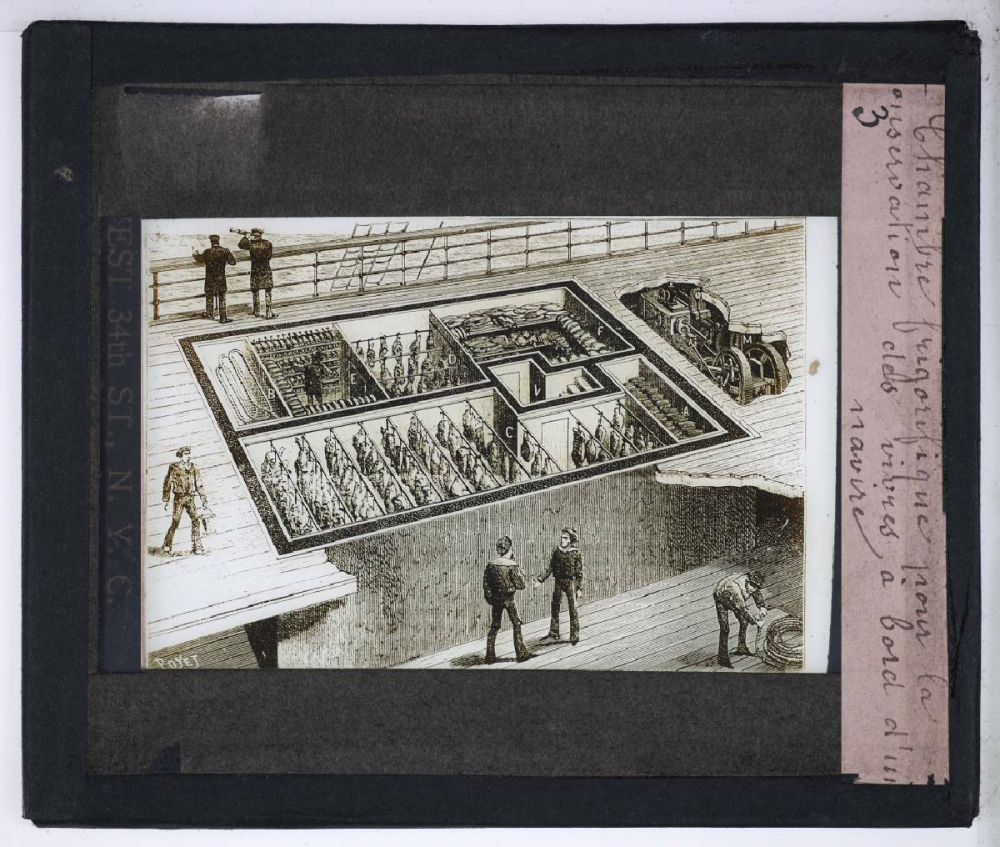 Chambre frigorifique pour la
onservation des vivres a bord d'un
navire
3
EST 34th ST., N. Y. C.
B
E
D
F
V
C
A
M
POYET